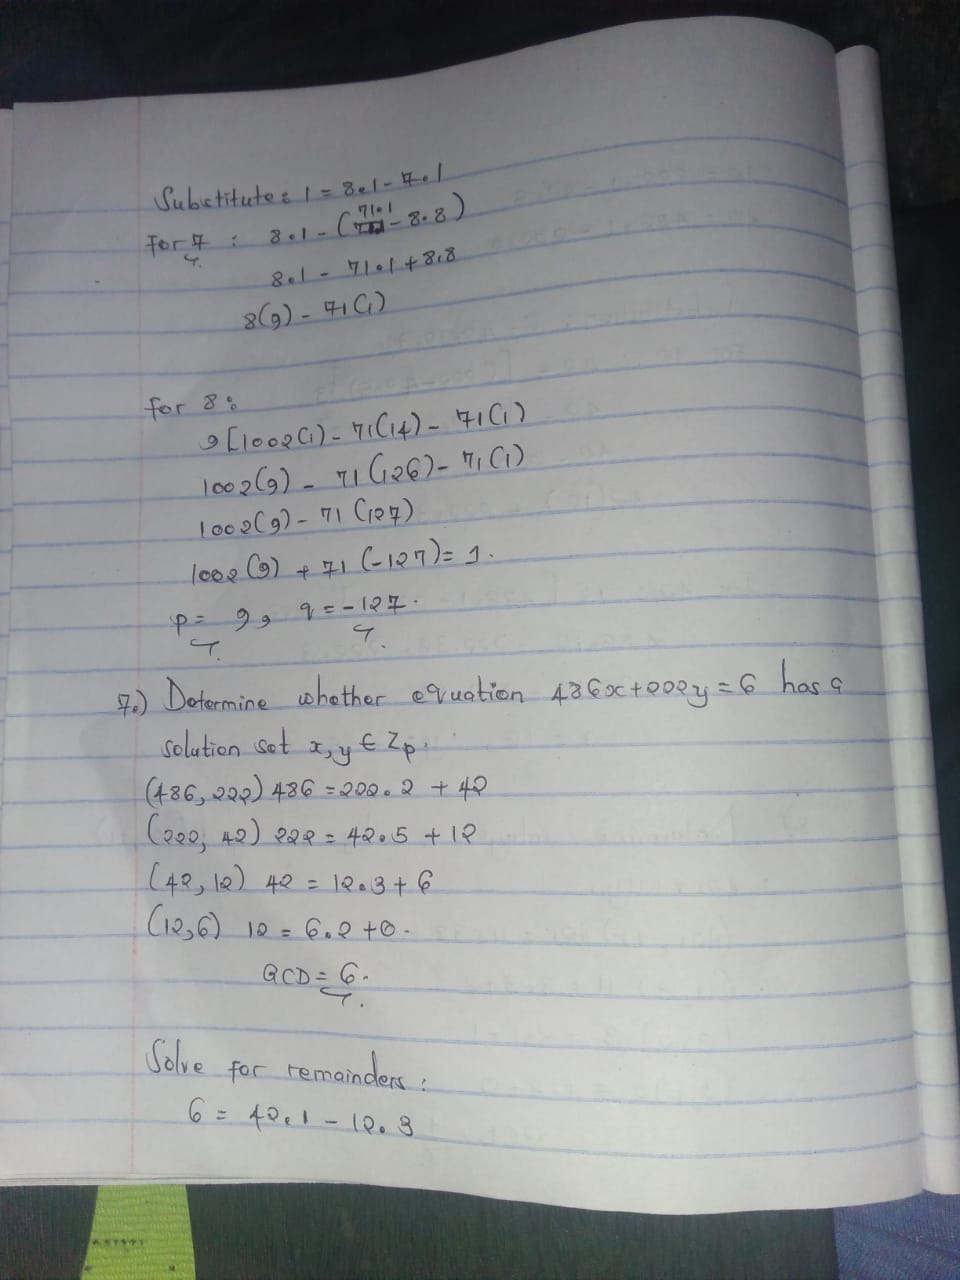 Substitute: 1 = 8.1 - 7.1
For 7 : 8.1 - (71.1 - 8.8)
8.1 - 71.1 + 8.8
8(9) - 71(1)
for 8:
9[1002(1) - 71(14) - 71(1)
1002(9) - 71(126) - 71(1)
1002(9) - 71(127)
1002(9) + 71(-127) = 1.
p = 9, q = -127.
7.) Determine whether equation 486x+222y = 6 has a
solution set x, y ∈ Zp.
(486, 222) 486 = 222.2 + 42
(222, 42) 222 = 42.5 + 12
(42, 12) 42 = 12.3 + 6
(12,6) 12 = 6.2 + 0.
GCD = 6.
Solve for remainders:
6 = 42.1 - 12.3